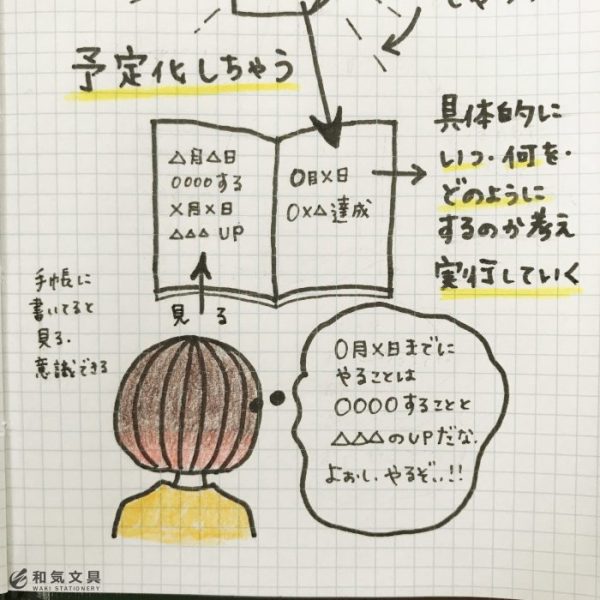 予定化しちゃう
△月△日
○○○○する
×月×日
△△△ UP
○月×日
○×△達成
具体的に
いつ・何を・
どのように
するのか考え
実行していく
手帳に
書いてると
見る.
意識できる
見る
○月×日までに
やることは
○○○○することと
△△△のUPだな.
よぉし、やるぞぃ!!
和気文具
WAKI STATIONERY